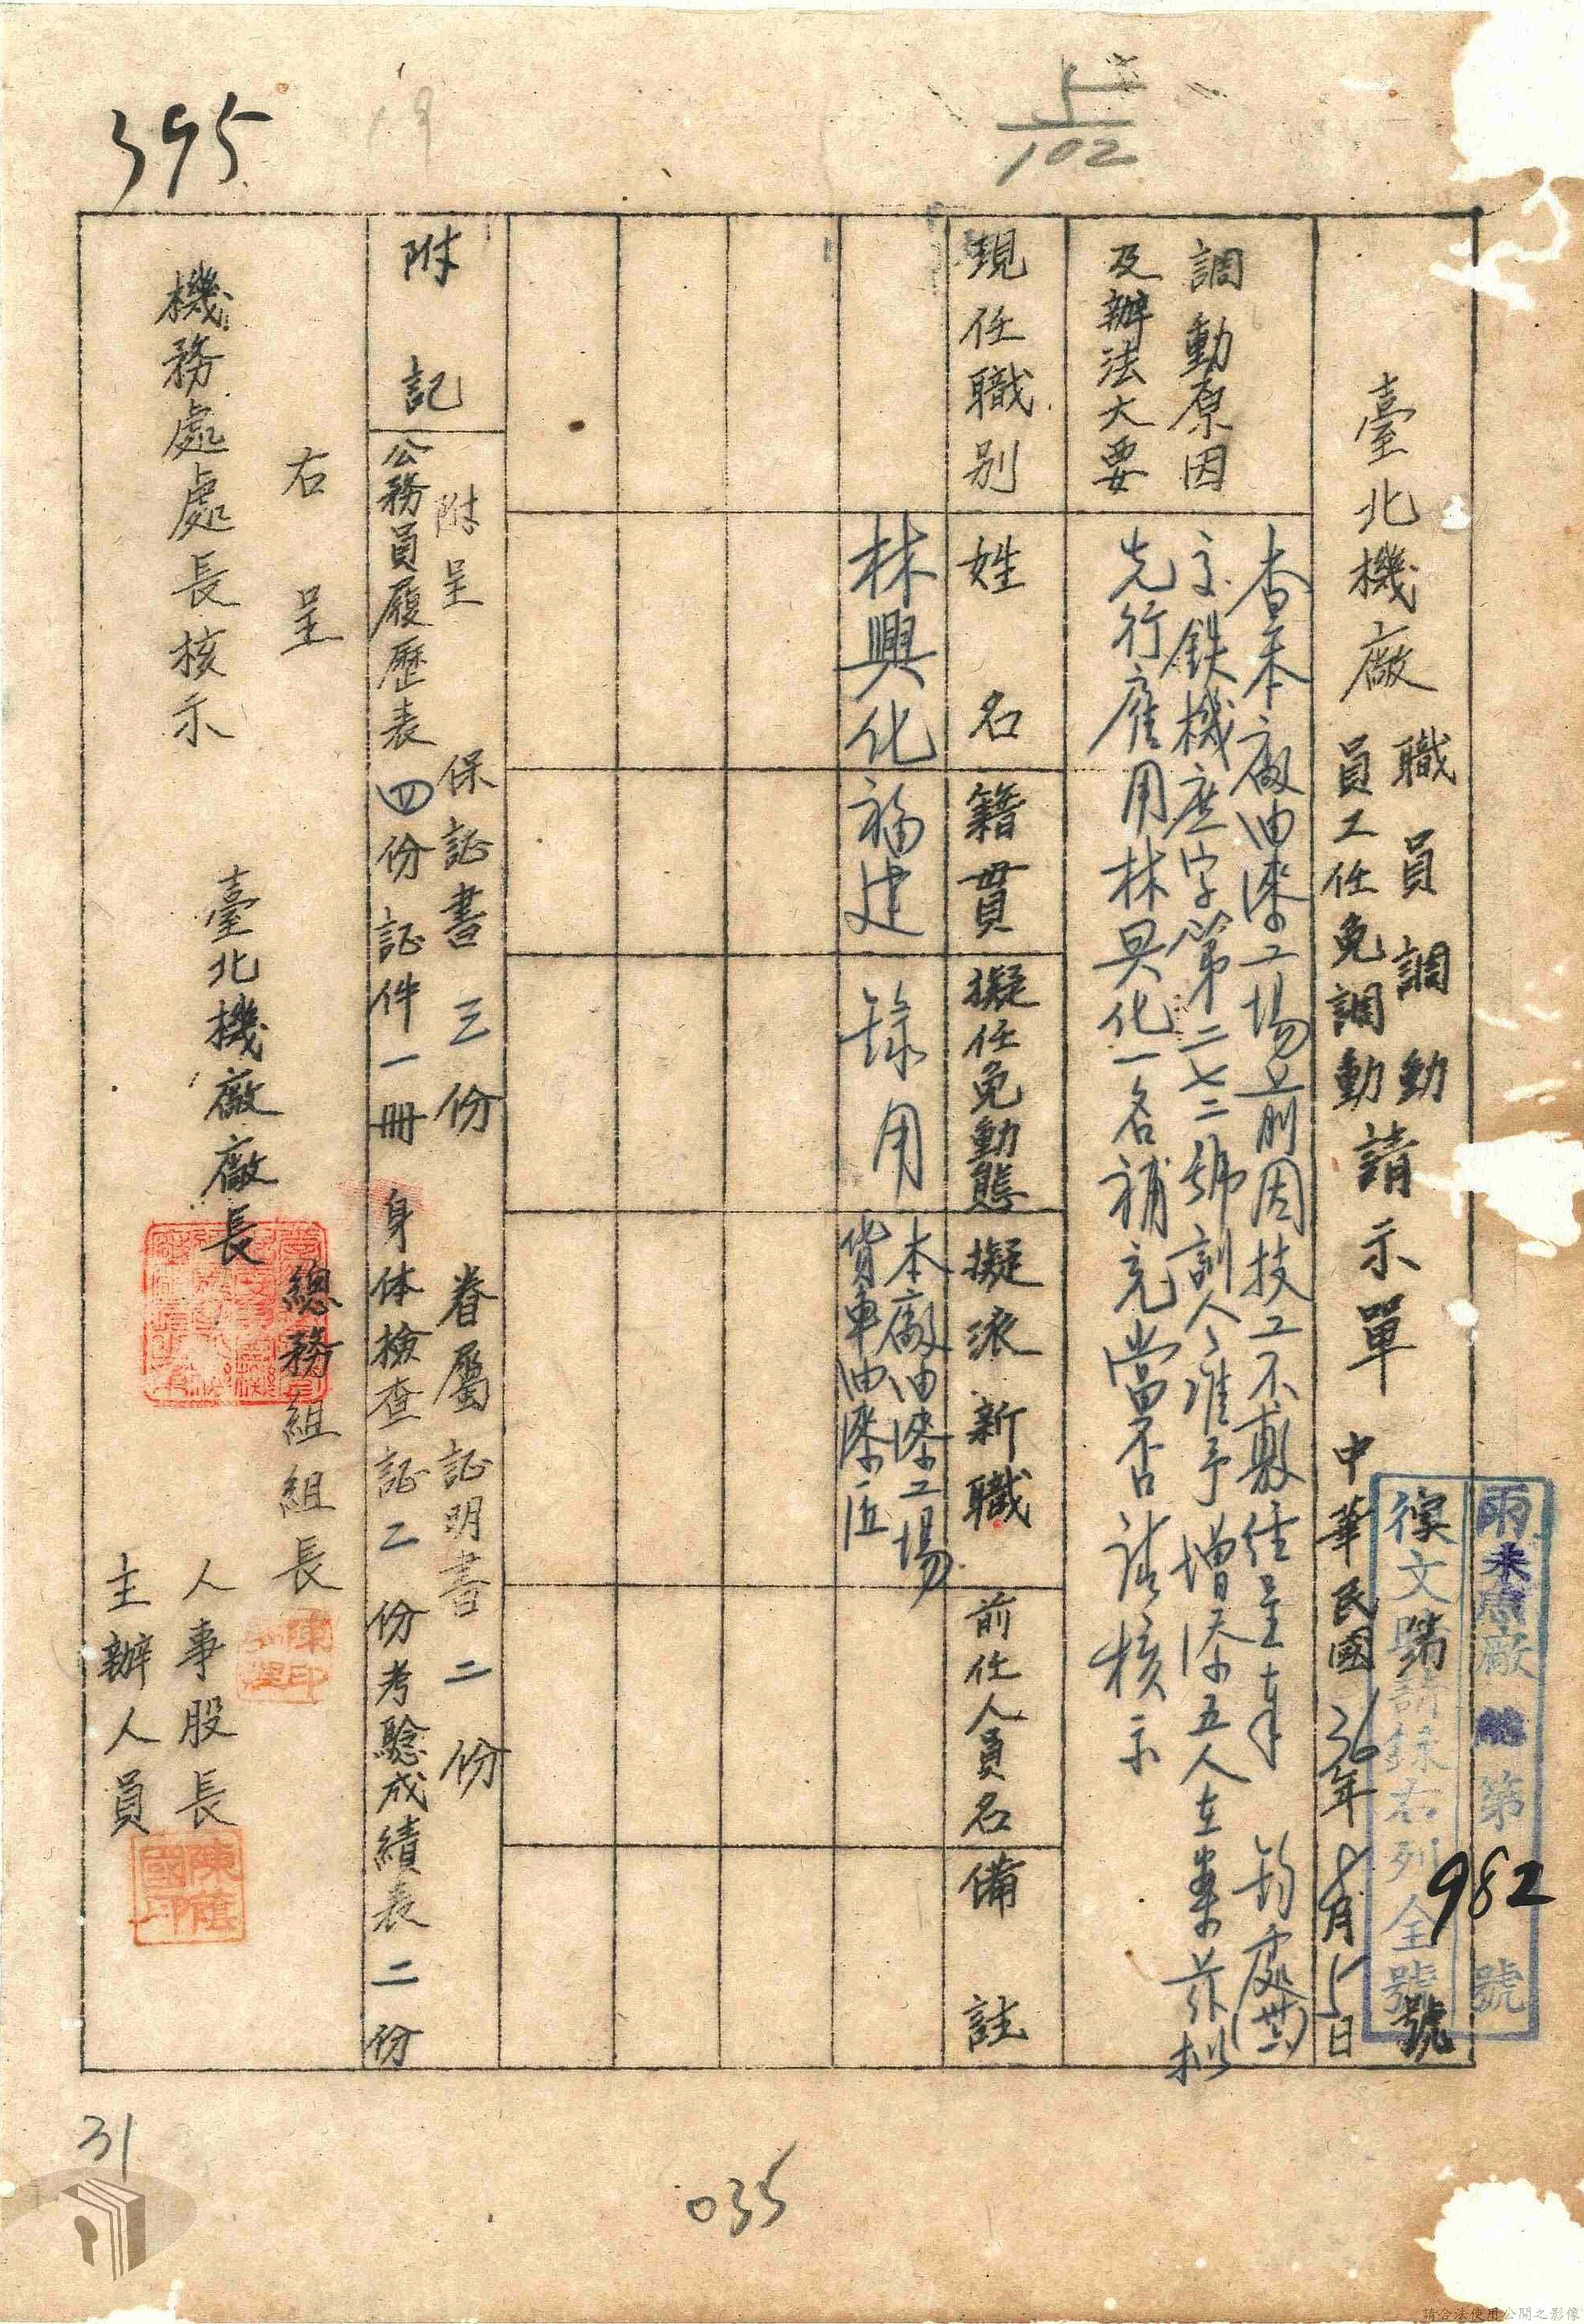 395
5
102
雨未處廠總第982號
復文時請錄右列全號
臺北機廠
職員調動
員工任免調動
請示單
中華民國36年8月5日
號
調動原因
及辦法大要
查本廠油漆工場前因技工不敷經呈奉 鈞處(卅六)
交鉄機庶字第二七二號訓令准予增添五人在案茲擬
先行雇用林興化一名補充當否請核示
現任職別
姓名
籍貫
擬任免動態
擬派新職
前任人員名
備註
林興化
福建
錄用
本廠油漆工場
貨車油漆匠
附記
附呈
保証書三份
眷屬証明書二份
公務員履歷表四份
証件一冊
身体檢查証二份
考驗成績表二份
右呈
機務處處長核示
臺北機廠廠長
總務組組長
人事股長
主辦人員
31
035
請合法使用公開之影像